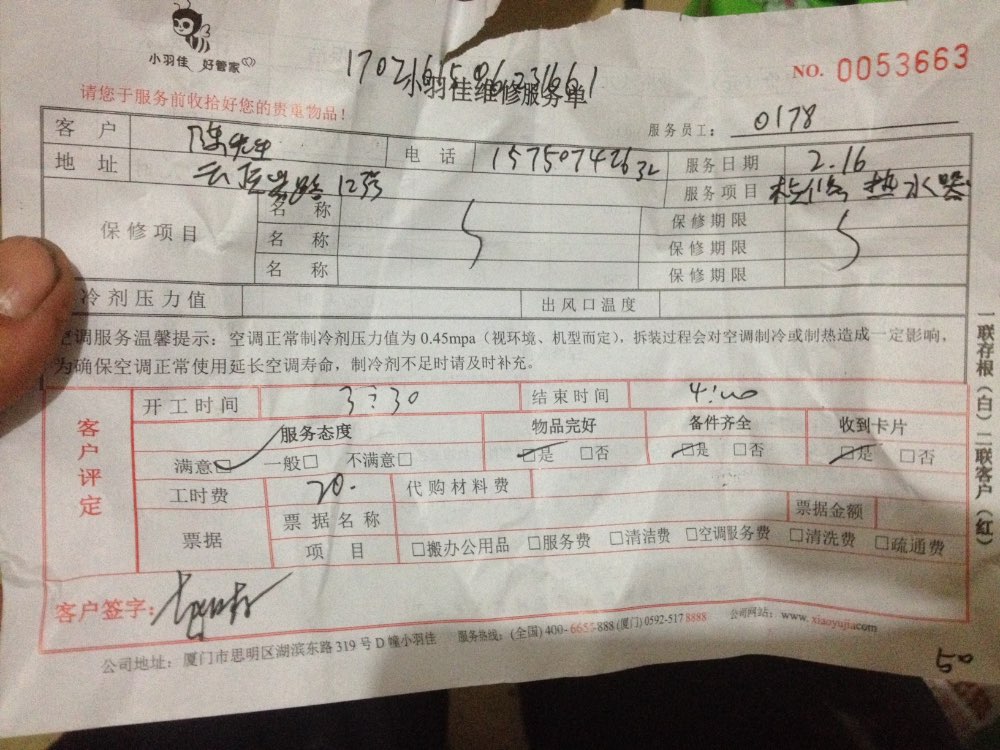 小羽佳 好管家
NO. 0053663
小羽佳维修服务单
请您于服务前收拾好您的贵重物品！
服务员工： 0178
客 户 陈先生 电 话 15750742632 服务日期 2.16
地 址 12号 服务项目 热水器
保修项目 名 称 保修期限
名 称 保修期限
名 称 保修期限
冷剂压力值 出风口温度
空调服务温馨提示：空调正常制冷剂压力值为 0.45mpa（视环境、机型而定），拆装过程会对空调制冷或制热造成一定影响，
为确保空调正常使用延长空调寿命，制冷剂不足时请及时补充。
客户评定
开工时间 3:30 结束时间 4:00
服务态度 物品完好 备件齐全 收到卡片
满意□ 一般□ 不满意□ □是 □否 □是 □否 □是 □否
工时费 20. 代购材料费
票据 票据名称 票据金额
项 目 □搬办公用品 □服务费 □清洁费 □空调服务费 □清洗费 □疏通费
客户签字：
公司地址：厦门市思明区湖滨东路 319 号 D 幢小羽佳 服务热线：(全国) 400-6655-888 (厦门) 0592-517 8888 公司网站：www.xiaoyujia.com
50
一联存根（白）二联客户（红）